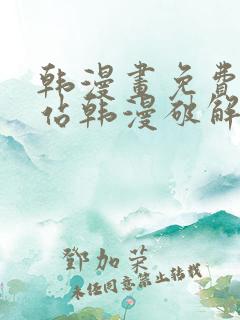 韩漫畫免費
佔韩漫破解
鄧加荣
未经同意禁止转载